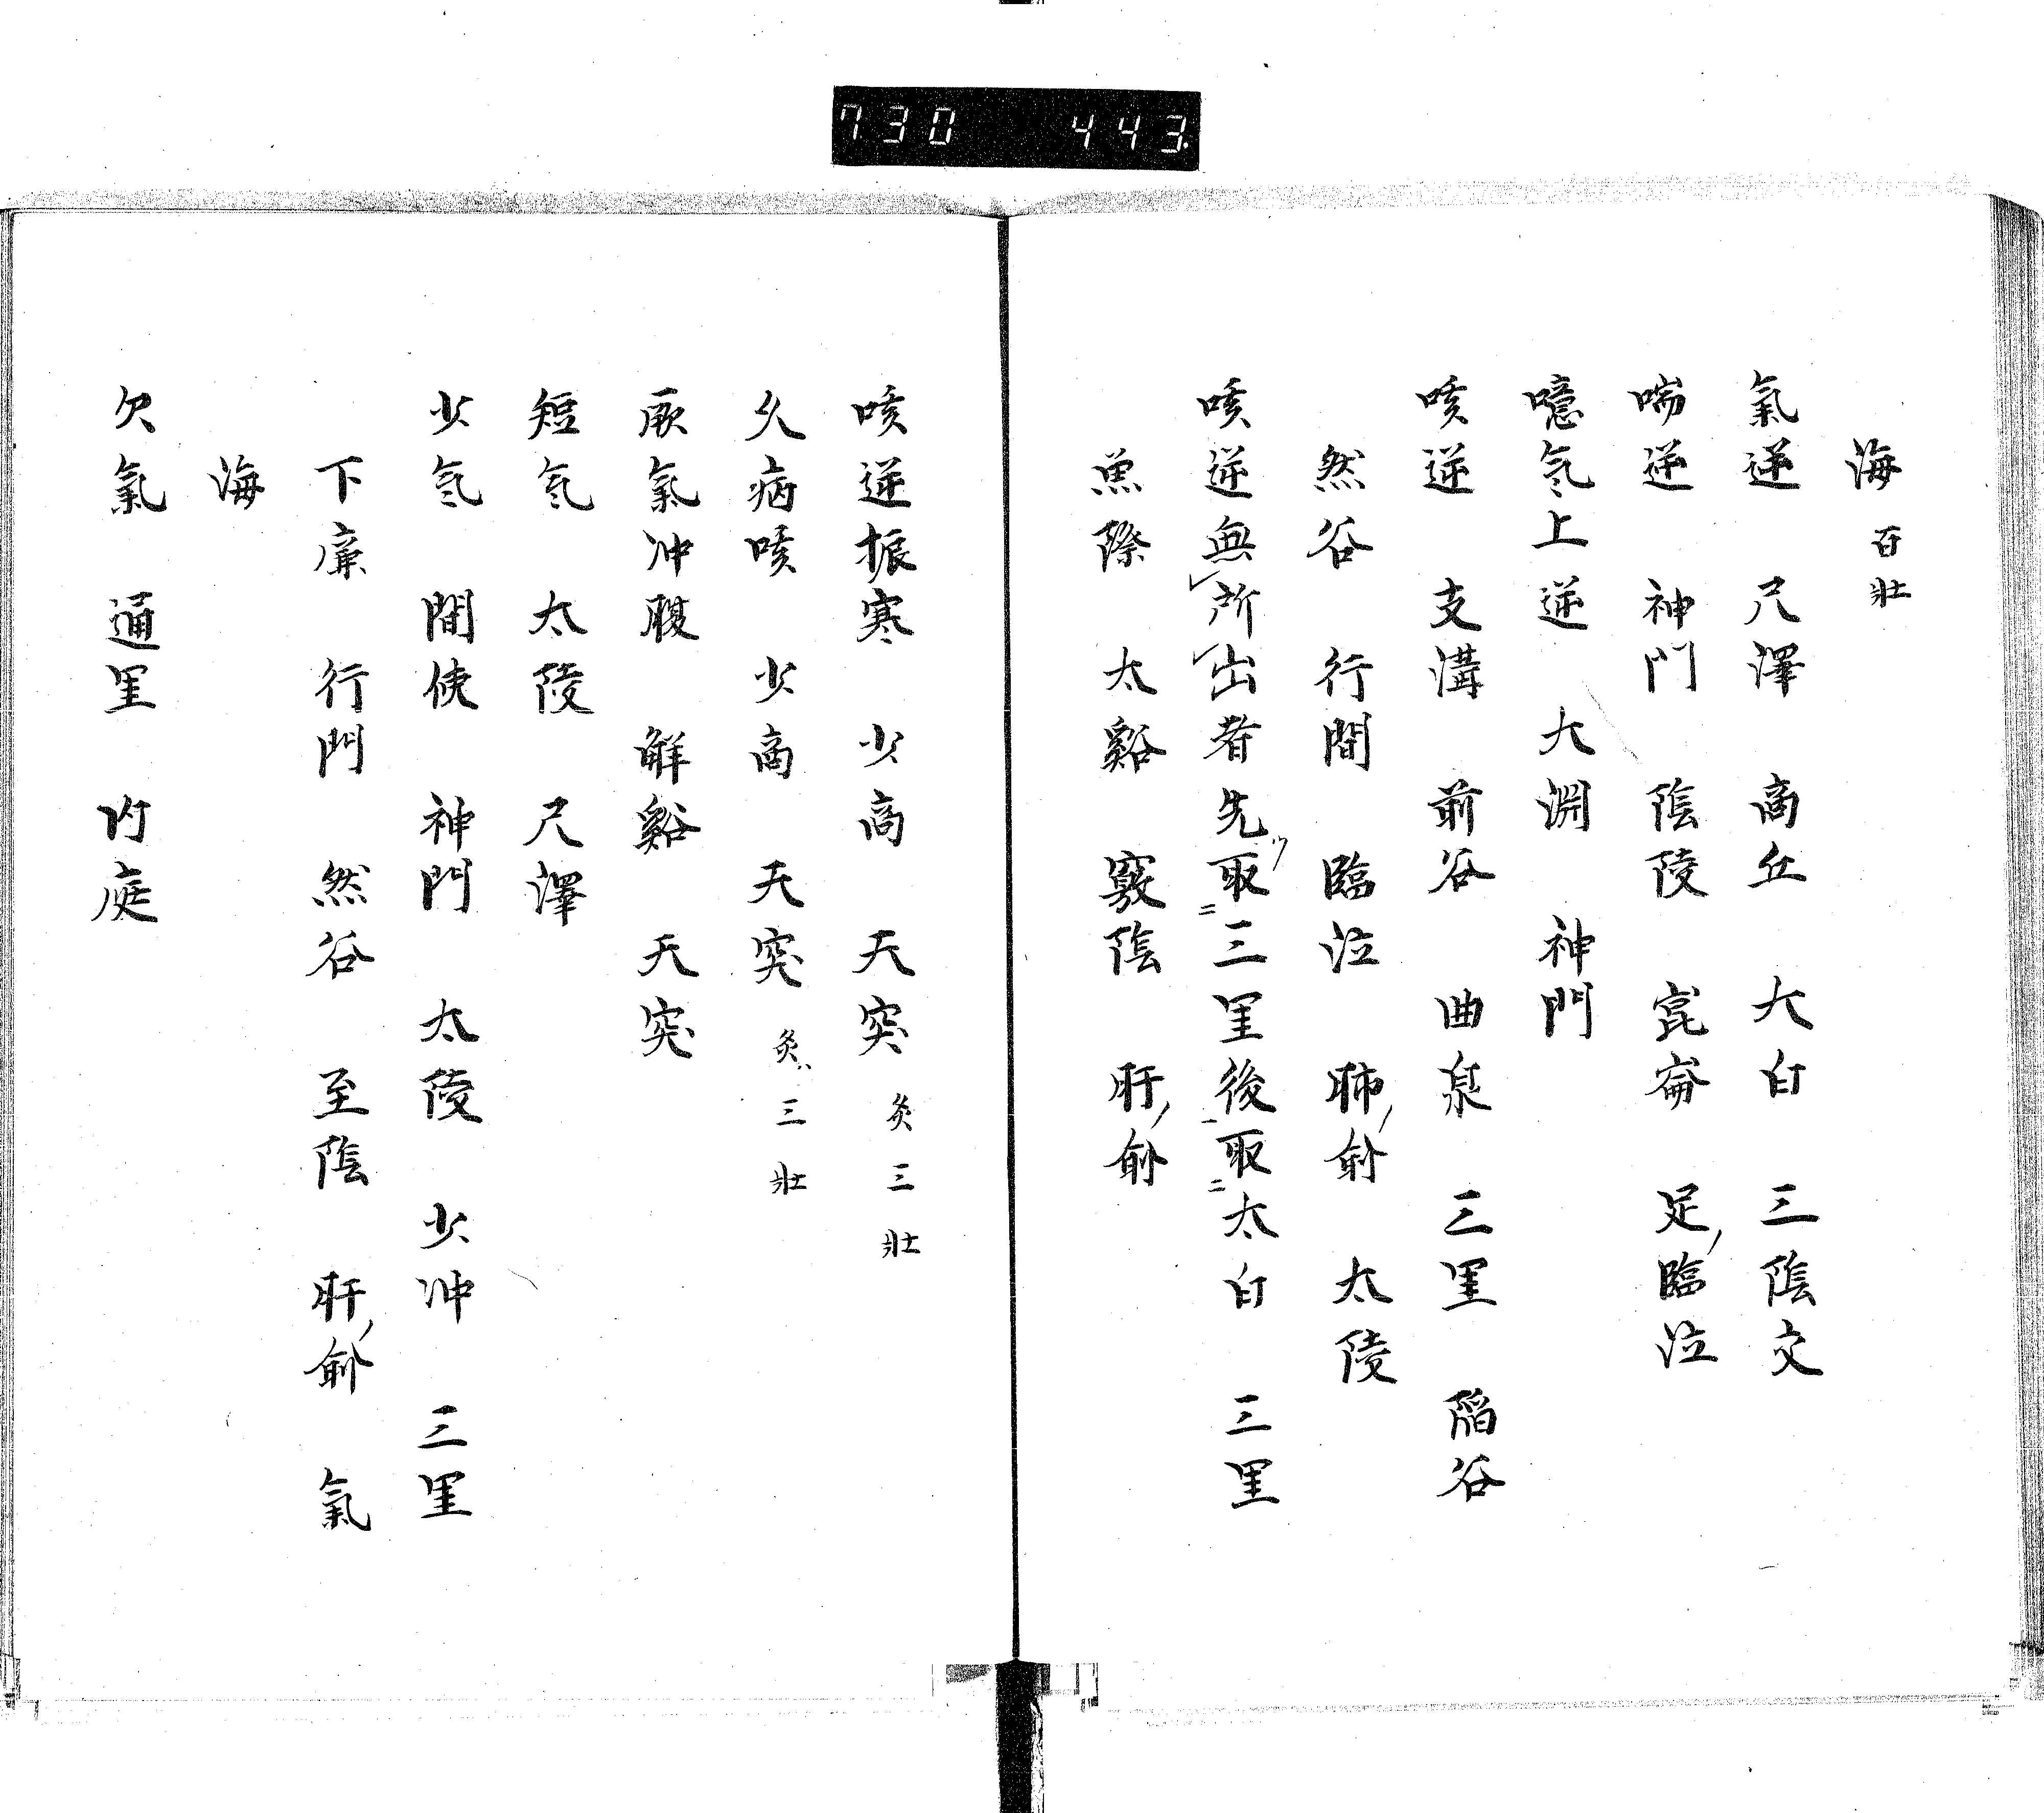 730 443
海 百壯
氣逆 尺澤 商丘 大白 三陰交
喘逆 神門 陰陵 崑崙 足臨泣
噫气上逆 大淵 神門
咳逆 支溝 前谷 曲泉 三里 陷谷
然谷 行間 臨泣 肺俞 太陵
咳逆無所出者先取三里後取太白 三里
魚際 太谿 竅陰 肝俞
咳逆振寒 少商 天突 灸三壯
久病咳 少商 天突 灸三壯
厥氣冲腹 觧谿 天突
短气 太陵 尺澤
少气 間使 神門 太陵 少冲 三里
下廉 行門 然谷 至陰 肝俞 氣
海
欠氣 通里 内庭